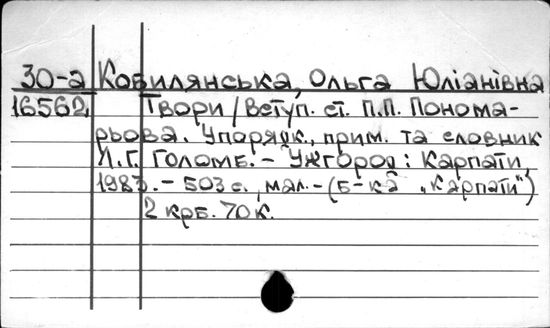 30-а Кобилянська, Ольга Юліанівна
16562 Твори / Вступ. ст. П.П. Понома-
рьова. Упорядк., прим. та словник
Л.Г. Голомб. – Ужгород: Карпати,
1983. – 503 с., мал. – (Б-ка „Карпати")
2 крб. 70 к.